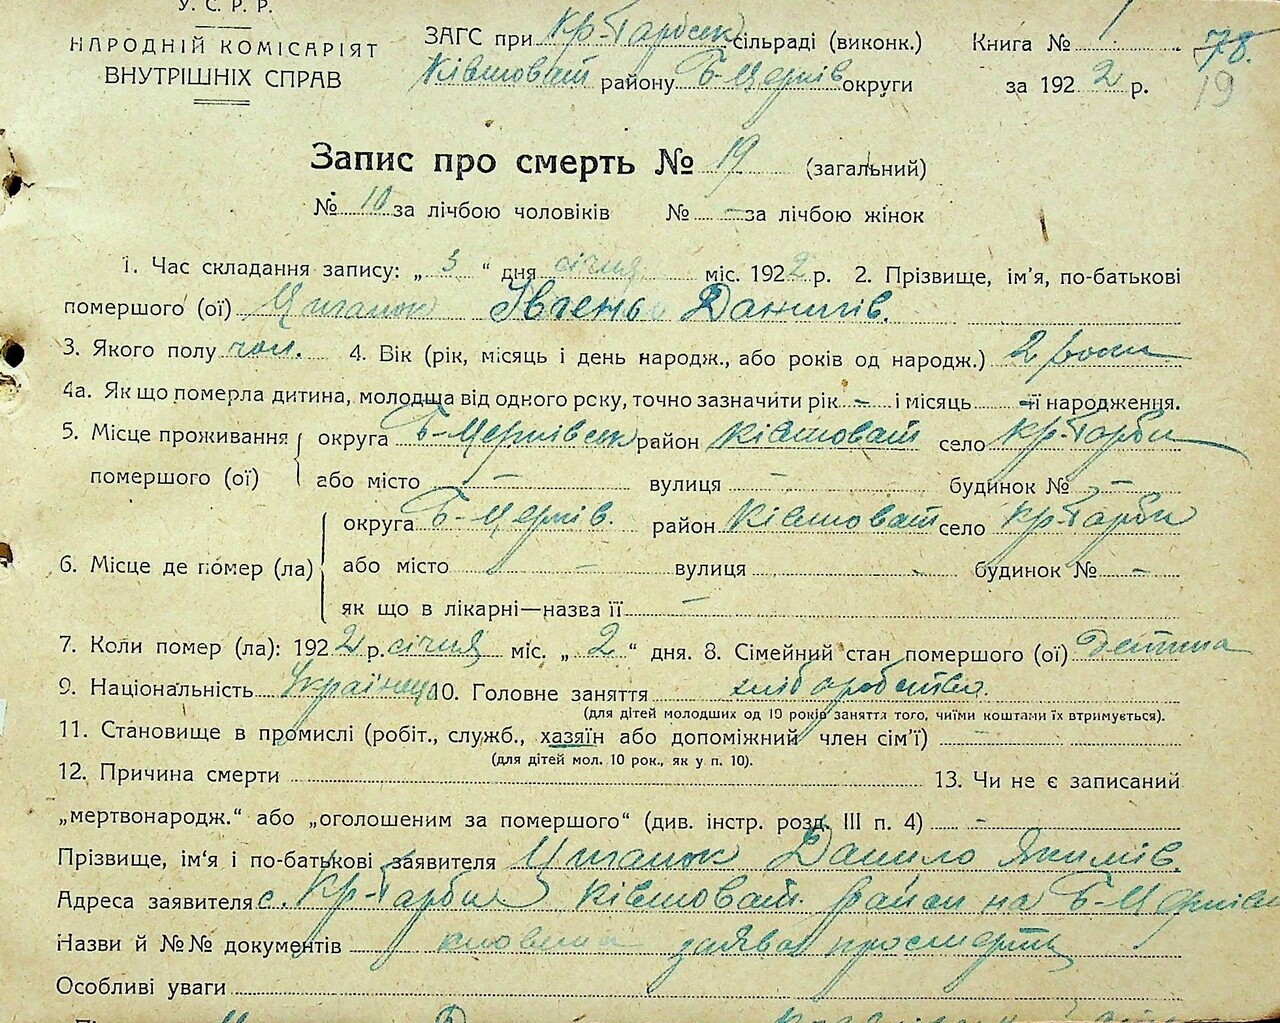 У. С. Р. Р.
НАРОДНІЙ КОМІСАРІЯТ
ВНУТРІШНІХ СПРАВ
ЗАГС при Кр-Гарбиск сільраді (виконк.)
Ківшоват району Б-Церків округи
Книга № 1
за 1922 р.
78.
19
Запис про смерть № 19 (загальний)
№ 10 за лічбою чоловіків № - за лічбою жінок
1. Час складання запису: „ 3 “ дня січня міс. 1922 р. 2. Прізвище, ім'я, по-батькові
помершого (ої) Циганок Івгеньо Данилів.
3. Якого полу чол. 4. Вік (рік, місяць і день народж., або років од народж.) 2 роки
4а. Як що померла дитина, молодща від одного рску, точно зазначити рік - і місяць - її народження.
5. Місце проживання помершого (ої) округа Б-Церківськ район Ківшоват село Кр-Гарби
або місто - вулиця - будинок № -
6. Місце де помер (ла) округа Б-Церків. район Ківшоват село Кр-Гарби
або місто - вулиця - будинок № -
як що в лікарні—назва її -
7. Коли помер (ла): 1922 р. січня міс. „ 2 “ дня. 8. Сімейний стан помершого (ої) Детина
9. Національність Українец 10. Головне заняття хліборобство.
(для дітей молодших од 10 років заняття того, чиїми коштами їх втримується).
11. Становище в промислі (робіт., служб., хазяїн або допоміжний член сім'ї) -
(для дітей мол. 10 рок., як у п. 10).
12. Причина смерти 13. Чи не є записаний
„мертвонародж.“ або „оголошеним за помершого“ (див. інстр. розд. III п. 4) -
Прізвище, ім'я і по-батькові заявителя Циганок Данило Якимів.
Адреса заявителя с. Кр-Гарби Ківшоват. район на Б-Церків
Назви й №№ документів словесна заява про смерть
Особливі уваги